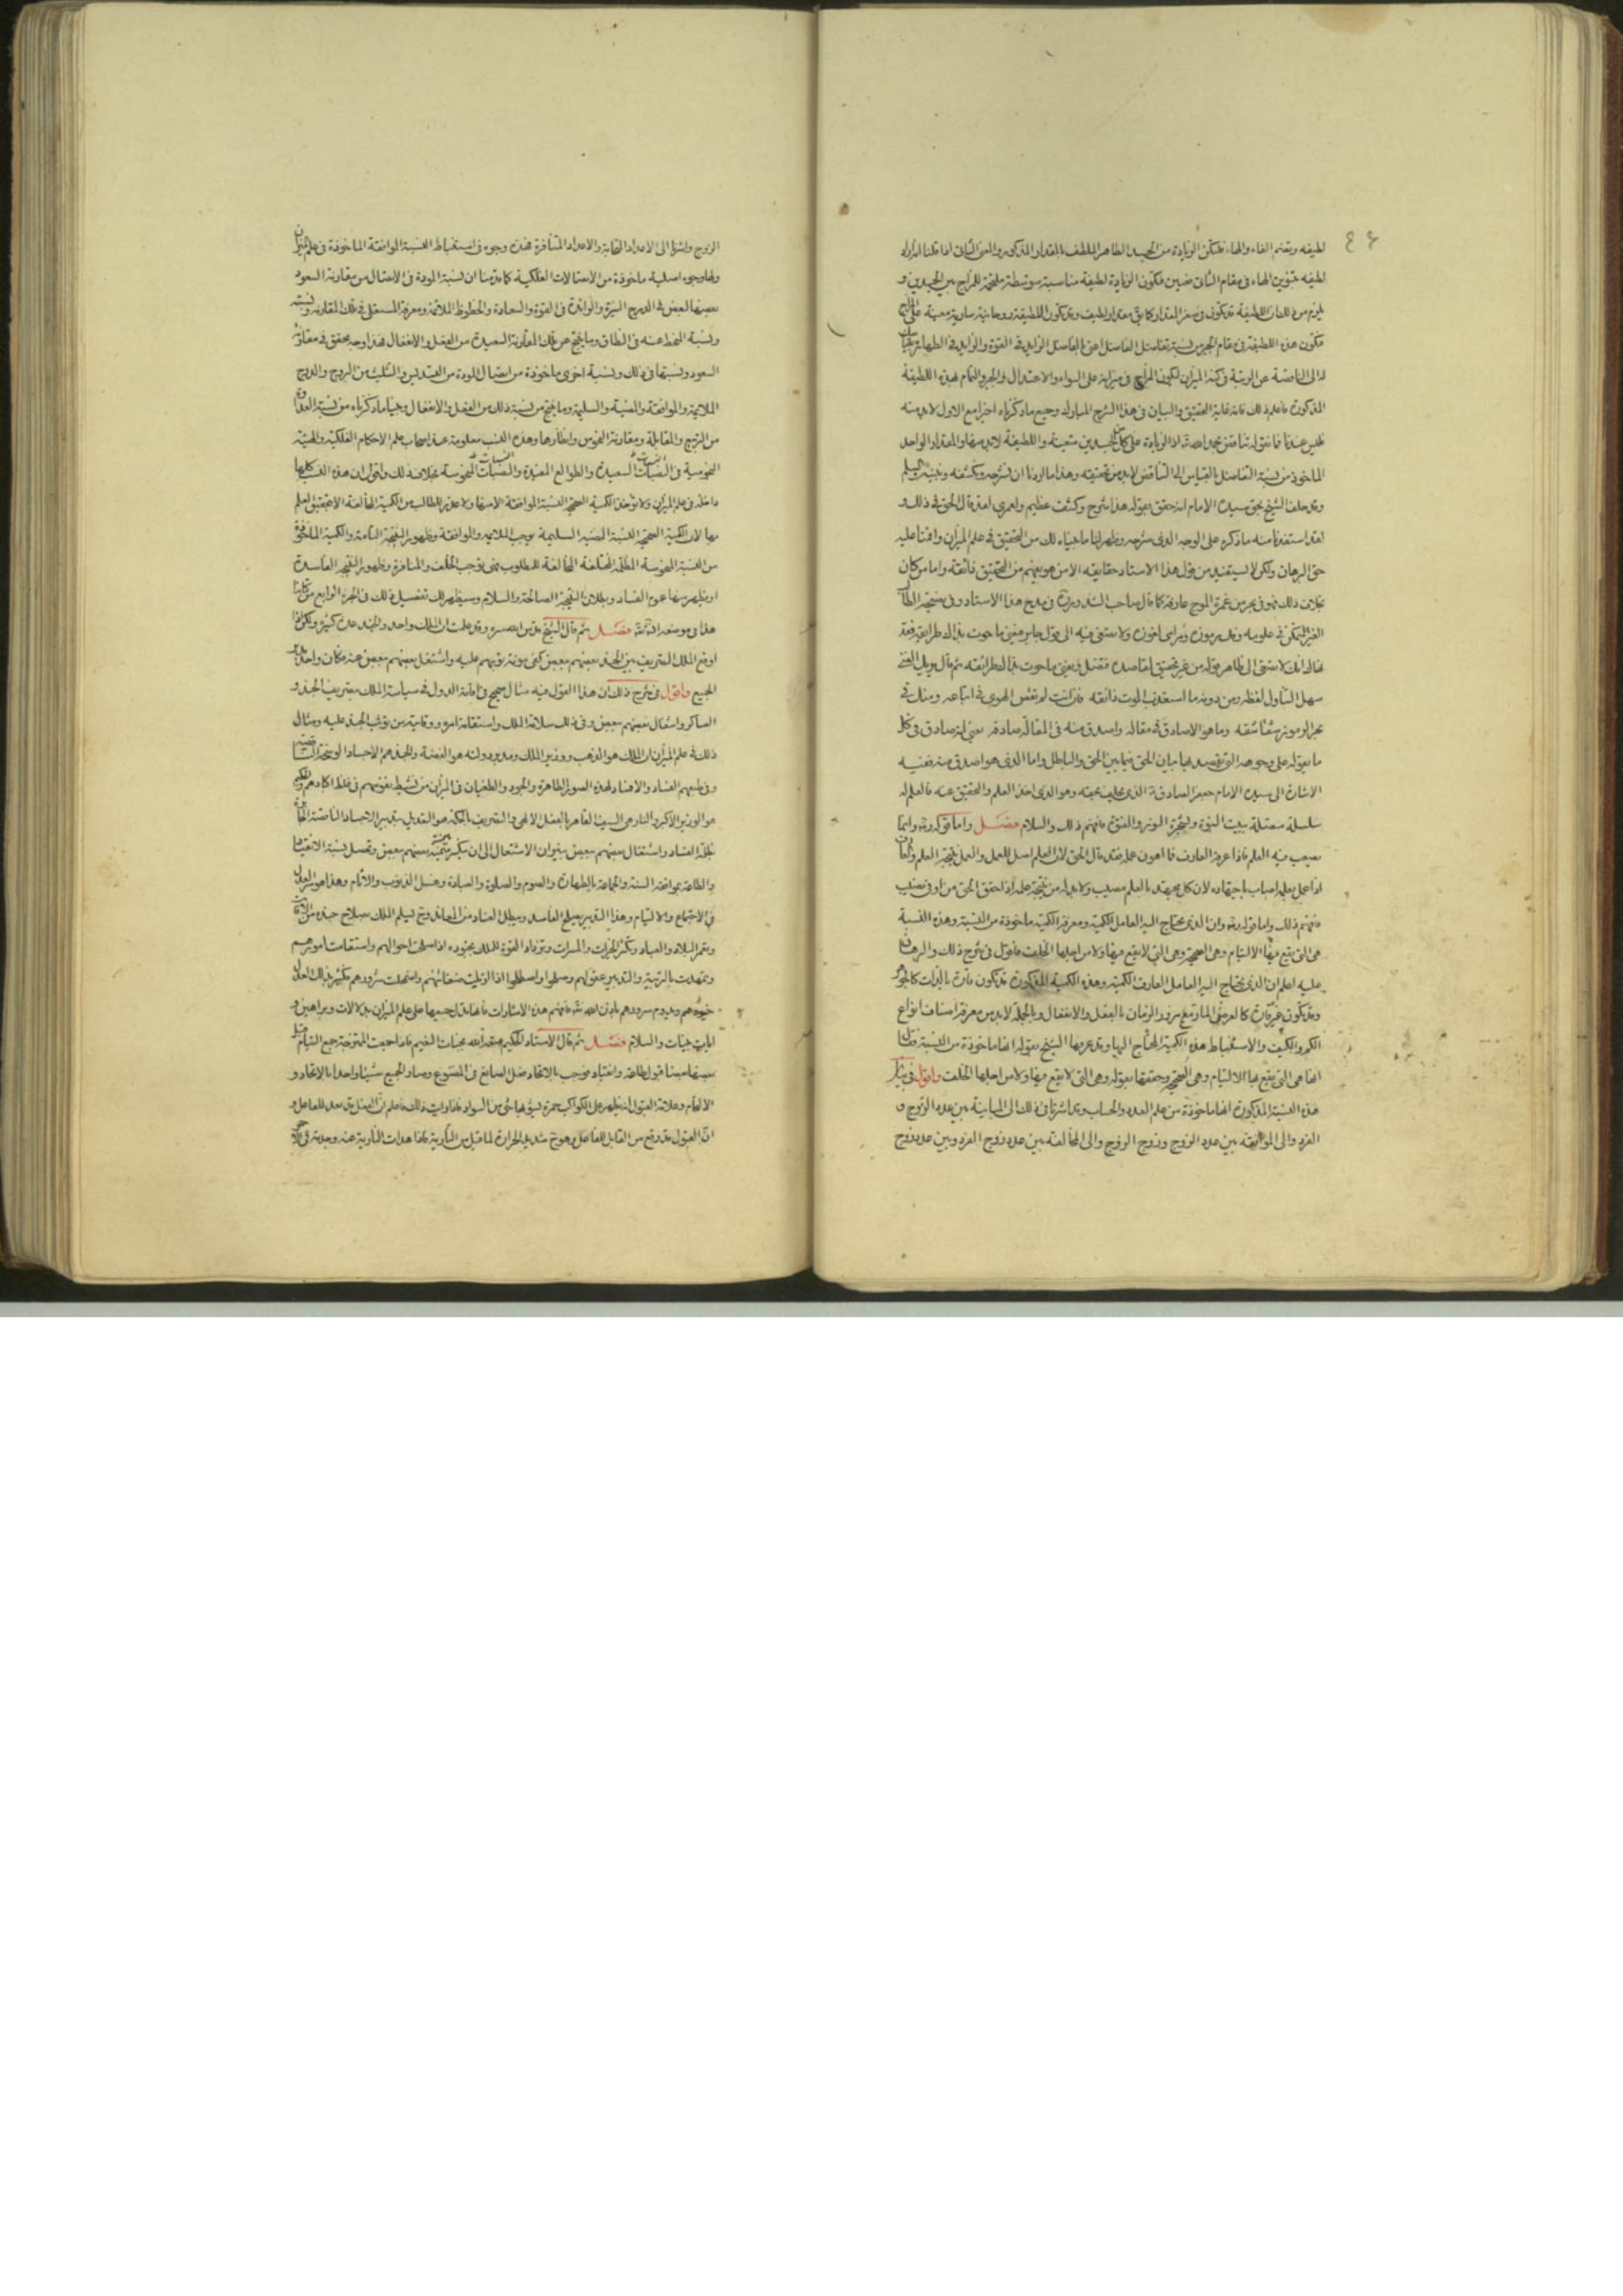 لطيفه وبفتح الفاء والهاء فلتكن الزيادة من الجسد الطاهر اللطف بالمقدار المذكور والمعنى الثانى اذا قلنا
لطيفه بتنوين الهاء فى مقام الثانى فتكون الزيادة لطيفة مناسبة متوسطة ملتحمة للمزاج بين الجسدين و
يلزم من ذلك ان اللطيفة قد تكون فى صغر المقدار كما فى مقدار لطيف وقد تكون اللطيفة روحانية سارية معينة على
فتكون هذه اللطيفة فى مقام الجبر من نسبة تفاضل الفاضل اعنى الفاضل الزايد فى القوة والزايد فى الطهارة
الى الناقصة عن الرتبة فى كفة الميزان لكون المزاج فى ميزانه على السواء والاعتدال والجبر والتمام بهذه اللطيفة
المذكورة فاعلم ذلك فانه غاية التحقيق والبيان فى هذا الشرح المبارك وجميع ما ذكرناه اخيرا مع الاول لابد منه
فليس عندنا فانقوله تناقض بحمد الله تع اذ الزيادة على كل من الجسدين متعينة واللطيفة لابد منها والمقدار الواحد
الماخوذ من نسبة التفاضل بالقياس الى الناقص لابد من تحقيقه وهذا ما اردنا ان نشرحه ونكشفه ونبينه
وقد حلف الشيخ بحق سيده الامام انه حقق بقوله هذا شرح وكشف عظيم ولعمرى لقد قال الحق فى ذلك و
لقد استفدنا منه ما ذكره على الوجه الذى شرحه وظهر لنا ما بيناه لك من التحقيق فى علم الميزان واقمنا عليه
حق البرهان ولكن لا يستفيد من قول هذا الاستاد حقايقه الا من هو بفهم من التحقيق فائقة واما من كان
بخلاف ذلك فهو فى بحر من غمرة الموج غارقة كما قال صاحب الشذور فى مدح هذا الاستاد وفى نصيحة
الغير المتمكن فى علومه
فقال انك لا تبقى الى ظاهر قوله من غير تحقيق لمقاصده
سهل التناول لفظه ومن دونه ما استعذب الموت ذائقه فان انت لم تقص الهوى فى اتباعه ومثل فى
وما هو الا صادق فى مقاله واصدق منه فى المقالة صادقه يعنى انه صادق فى كل
ما يقوله على وجوهه التى يقصد بها بيان الحق فيما بين الحق والباطل واما الذى هو اصدق منه فعنيه
الاشارة الى سيده الامام جعفر الصادق الذى يحلف بحقه وهو الذى اخذ العلم والتحقيق عنه فالعلم له
سلسلة متصلة ببيت النبوة وشجرة النور والفتوة فافهم ذلك والسلام فصل واما قوله وانما
يصعب فيه العلم فاذا عرفه العارف فما اهون عمله فقد قال الحق لان العلم اصل للعمل والعمل نتيجة العلم
اذا عمل بعلمه اصاب باجتهاده لان كل مجتهد بالعلم مصيب ولابد له من نتيجة عمله اذا تحقق الحق من اوفى نصيب
فافهم ذلك واما قوله وان الذى يحتاج اليه العامل الكمية ومعرفة الكمية ماخوذة من النسبة وهذه النسبة
هى التى يقع فيها الالتيام وهى الصحيحة وهى التى لا يقع فيها ولا من اجلها الخلف فاقول فى شرح ذلك والبرهان
عليه اعلم ان الذى يحتاج اليه العامل العارف الكمية وهذه الكمية المذكورة قد تكون قارة بالذات كالجوهر
وقد تكون غير قارة كالعرض المار تبع مرور الزمان بالفعل والانفعال وبالجملة لابد من معرفة اصناف انواع
الكم والكيف والاستنباط هذه الكمية المحتاج اليها وقد عرفها الشيخ بقوله انها ماخوذة من النسبة
انها هى التى يقع بها الالتيام وهى الصحيحة وحققها بقوله وهى التى لا يقع فيها ولا من اجلها الخلف واقول فى
هذه النسبة المذكورة انها ماخوذة من علم العدد والحساب وقد اشرنا فى ذلك الى المباينة بين عدد الزوج و
الفرد والى الموافقة بين عدد الزوج وزوج الزوج والى المخالفة بين عدد زوج الفرد وبين عدد زوج
الزوج واشرنا الى الاعداد المتحابة والاعداد المتنافرة فهذه وجوه فى استنباط النسبة الموافقة الماخوذة فى علم الميزان
ولها وجوه اصلية ماخوذة من الاتصالات الفلكية كما قدمنا ان نسبة المودة فى الاتصال من مقارنة السعود
بعضها لبعض فى الدرج النيرة والزائدة فى القوة والسعادة والحظوظ الملائمة ومعرفة المستعلى فى تلك المقارنة
ونسبة المنحط عنه فى النطاق وما ينتج عن تلك المقارنة السعيدة من الفعل والانفعال فهذا وجه محقق فى مقارنة
السعود ونسبتها فى ذلك ونسبة اخرى ماخوذة من اتصال المودة من التسديس والتثليث من البروج والدرج
الملايمة والموافقة والمضيئة والسليمة وما ينتج من نسبة ذلك من الفعل والانفعال وجميع ما ذكرناه من نسبة العداوة
من التربيع والمقابلة ومقارنة النحوس وانظارها وهذه النسب معلومة عند اصحاب علم الاحكام الفلكية
النجومية فى النصبات السعيدة والطوالع المفيدة والنصبات النحوسة بخلاف ذلك واقول ان هذه النسب كلها
داخلة فى علم الميزان ولا توخذ الكمية الصحيحة النسبة الموافقة الا منها ولا يحترز الطالب من الكمية المخالفة الا بتحقيق العلم
بها لان الكمية الصحيحة النسبة المضيئة السليمة توجب الملايمة والموافقة وظهور النتيجة التامة والكمية الماخوذة
من النسبة المنحوسة المظلمة المختلفة المخالفة للمطلوب فهى توجب الخلف والمنافرة وظهور النتيجة الفاسدة
او يظهر منها عموم الفساد وبطلان النتيجة الصالحة والسلام وسيظهر لك تفصيل ذلك فى الجزء الرابع من كتابنا
هذا فى موضعه ان شا الله تع فصل ثم قال الشيخ قدس الله سره وقد علمت ان الملك واحد والجند عدة كثيرة ولكن اذا
اوقع الملك التضريب بين الجند بعضهم ببعض كفى مونة توثبهم عليه واشتغل بعضهم ببعض عنه فكان واحدا
الجميع واقول فى شرح ذلك ان هذا القول فيه مثال صحيح فى اقامة الدول فى سياسة الملك بتضريب الجند و
العساكر واشغال بعضهم ببعض وفى ذلك سلامة الملك واستقامة امره ووقايته من توثب الجند عليه ومثال
ذلك فى علم الميزان ان الملك هو الذهب ووزير الملك ومدبر دولته هو الفضة والجند هم الاجساد الوسخة
وفى طبعهم الفساد والافساد لهذه الصور الطاهرة والجود والطغيان فى الميزان من تسليط نفوسهم فى غلظ اكبادهم
هو الوزير الاكبر والنار هى السيف القاهر بالفعل الالهى والتضريب بالحكمة هو التعديل بتدبير الاجساد الناقصة
بعلة الفساد واشتغال بعضهم ببعض بنيران الاشتعال الى ان تنكسر حمية بعضهم ببعض وتحصل نسبة الانقياد
والطاعة بموافقة السنة والجماعة بالطهارة والصوم والصلوة والعبادة وغسل الذنوب والاثام وهذا هو سر العدل
فى الاجتماع والالتيام وهذا التدبير يصلح الفاسد ويبطل الفساد من المعاند وح يسلم الملك بصلاح جنده من الافات
وتعمر البلاد والعباد وتكثر الخيرات والمسرات وتزداد القوة للملك بجنوده اذا صلحت احوالهم واستقامت امورهم
وتمهدت بالرتبة والتدبير عقولهم وصلحوا واصطلحوا اذا ازيلت ضغائنهم واضمحلت شرورهم فتكثر بذلك اعداد
خيرهم ويدوم سرورهم باذن الله تع فافهم هذه الاشارات فانها تدل جميعها على علم الميزان بدلالات وبراهين و
ايات بينات والسلام فصل ثم قال الاستاد الحكيم
بعضها بعضا قبول طاعة وانقياد فوجب بالاتحاد فعل الصانع فى المصنوع وصار الجميع شيئا واحدا بالاتحاد و
الالتيام وعلامة القبول انه يظهر على الكواكب حمرة
ان القبول قد وقع من القابل للفاعل وهو ح شديد الحرارة لما قبل من النارية فاذا هدات النارية عنه